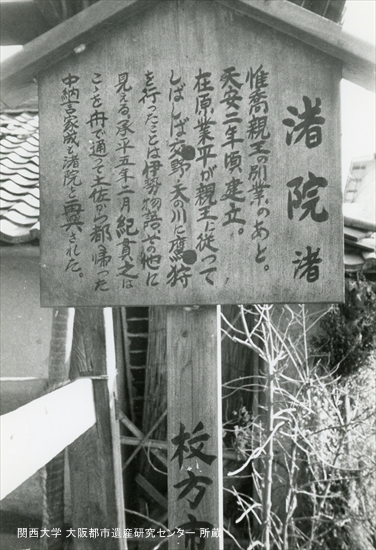 渚院 渚
惟喬親王の別業のあと。
天安二年頃建立。
在原業平が親王に従って
しばしば交野・天の川に鷹狩
を行ったことは伊勢物語その他に
見える。承平五年二月紀貫之は
こゝを舟で通って土佐から都へ帰った
中納言家成も渚院を再興された。
枚方市
関西大学 大阪都市遺産研究センター 所蔵